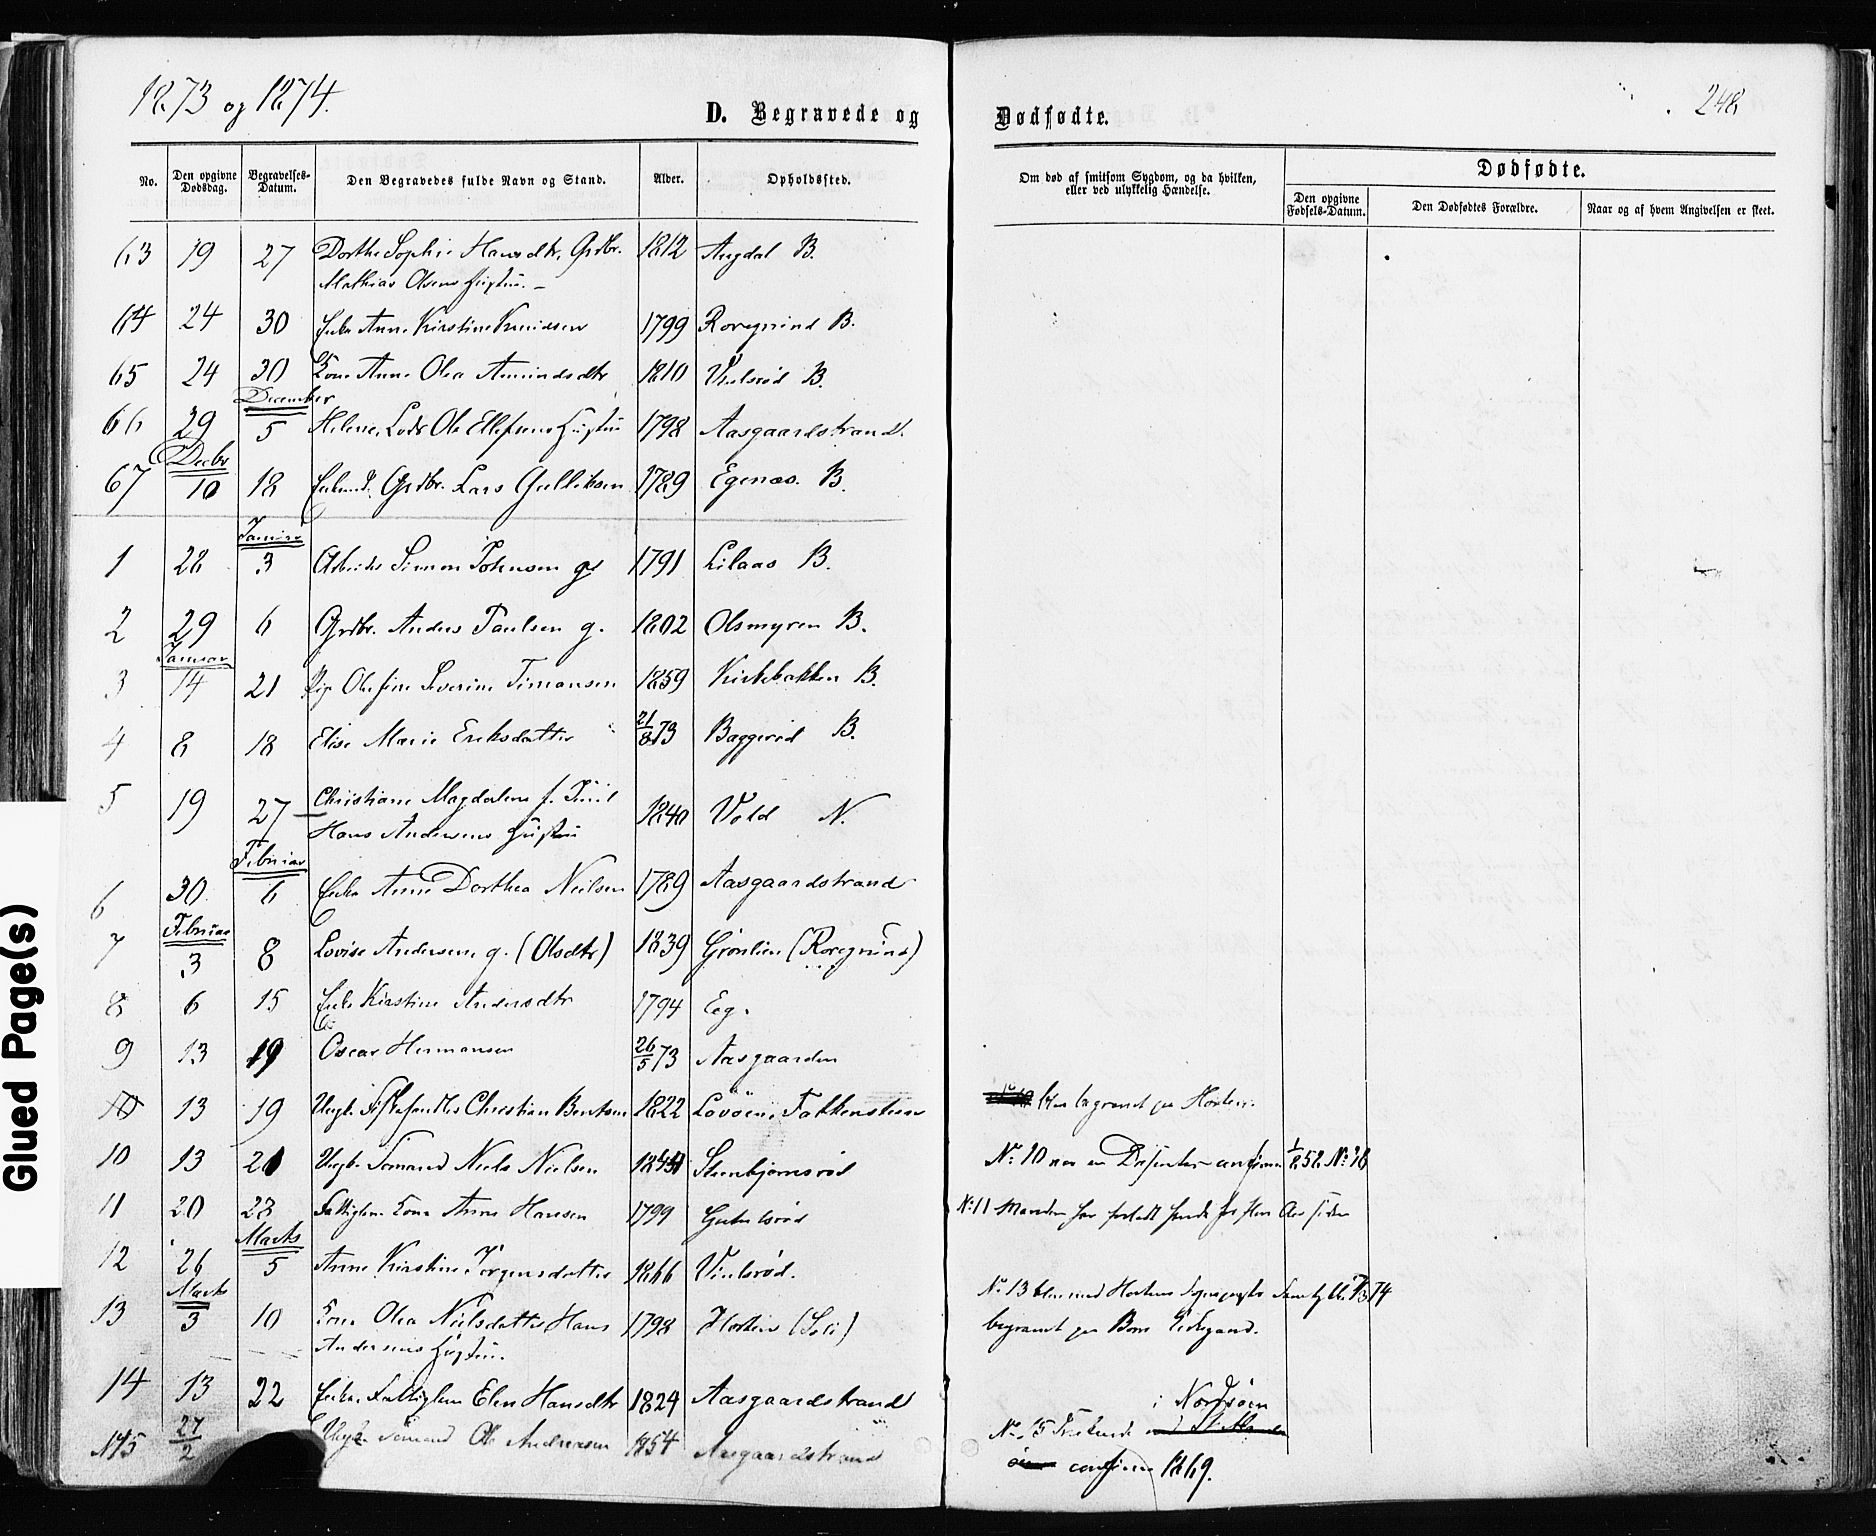 1873 og 1874.
248
D. Begravede og Dødfødte.
No. Den opgivne Dødsdag. Begravelses-Datum. Den Begravedes fulde Navn og Stand. Alder. Opholdssted.
Om død af smitsom Sygdom, og da hvilken, eller ved ulykkelig Hændelse.
Dødfødte.
Den opgivne Fødsels-Datum. Den Dødfødtes Forældre. Naar og af hvem Angivelsen er skeet.
63 19 27 Dorthe Sophie Hansdtr, Grdbr. 1812 Augdal B.
Mathias Olsens Hustru. –
64 24 30 Enke Anne Kirstine Knudsen 1799 Roregrind B.
65 24 30 Kone Anne Olea Amundsdtr 1810 Vinlsrød B.
December
66 29 5 Helene, Lods Ole Ellefsens Hustru 1798 Aasgaardstrand.
Decbr
67 10 18 Grdbr. Lars Gulliksen 1789 Egenæs. B.
Januar
1 28 3 Simon Johnsen g 1791 Lilaas B.
2 29 6 Grdbr. Anders Paulsen g. 1802 Olsmyren B.
Januar
3 14 21 Pige Olefine Severine Simonsen 1859 Kirkebakken B.
4 8 18 Elise Marie Eriksdatter 21/8 73 Baggerød B.
5 19 27 Christiane Magdalene f. 1840 Vold N.
Hans Andersens Hustru
Februar
6 30 6 Enke Anne Dorthea Nielsen 1789 Aasgaardstrand
Februar
7 3 8 Lovise Andersen g. (Olsdtr) 1839 Grønlien (Roregrind)
8 6 15 Enke Kirstine Andersdtr 1794 Eeg.
9 13 19 Oscar Hermansen 26/5 73 Aasgaarden
10 13 19 Ungk. Christian Bentsen 1822 Løvøen, Falkensten
blev begravet paa Horten.
10 13 21 Ungk. Sømand Niels Nielsen Steenbjørnsrød
No 10 var en Dissenter
11 20 28 Fattiglem Kone Anne Hansen 1799
No 11 Manden har forladt hende for flere Aar siden
Marts
12 26 5 Anne Kirstine Jørgensdatter 1866 Vinlsrød.
Marts
13 3 10 Kone Olea Nielsdatter, Hans 1798 Horten
Andersens Hustru.
No 13 blev med Hortens Sognepræsts Samtykke
begravet paa Borre Kirkegaard.
14 13 22 Enke. Fattiglem Elen Hansdtr 1824 Aasgaardstrand
15 27/2 Ungk. Sømand Ole Andreasen 1854 Aasgaardstrand
i Nordsøen
No. 15
confirm 1869.
Glued Page(s)